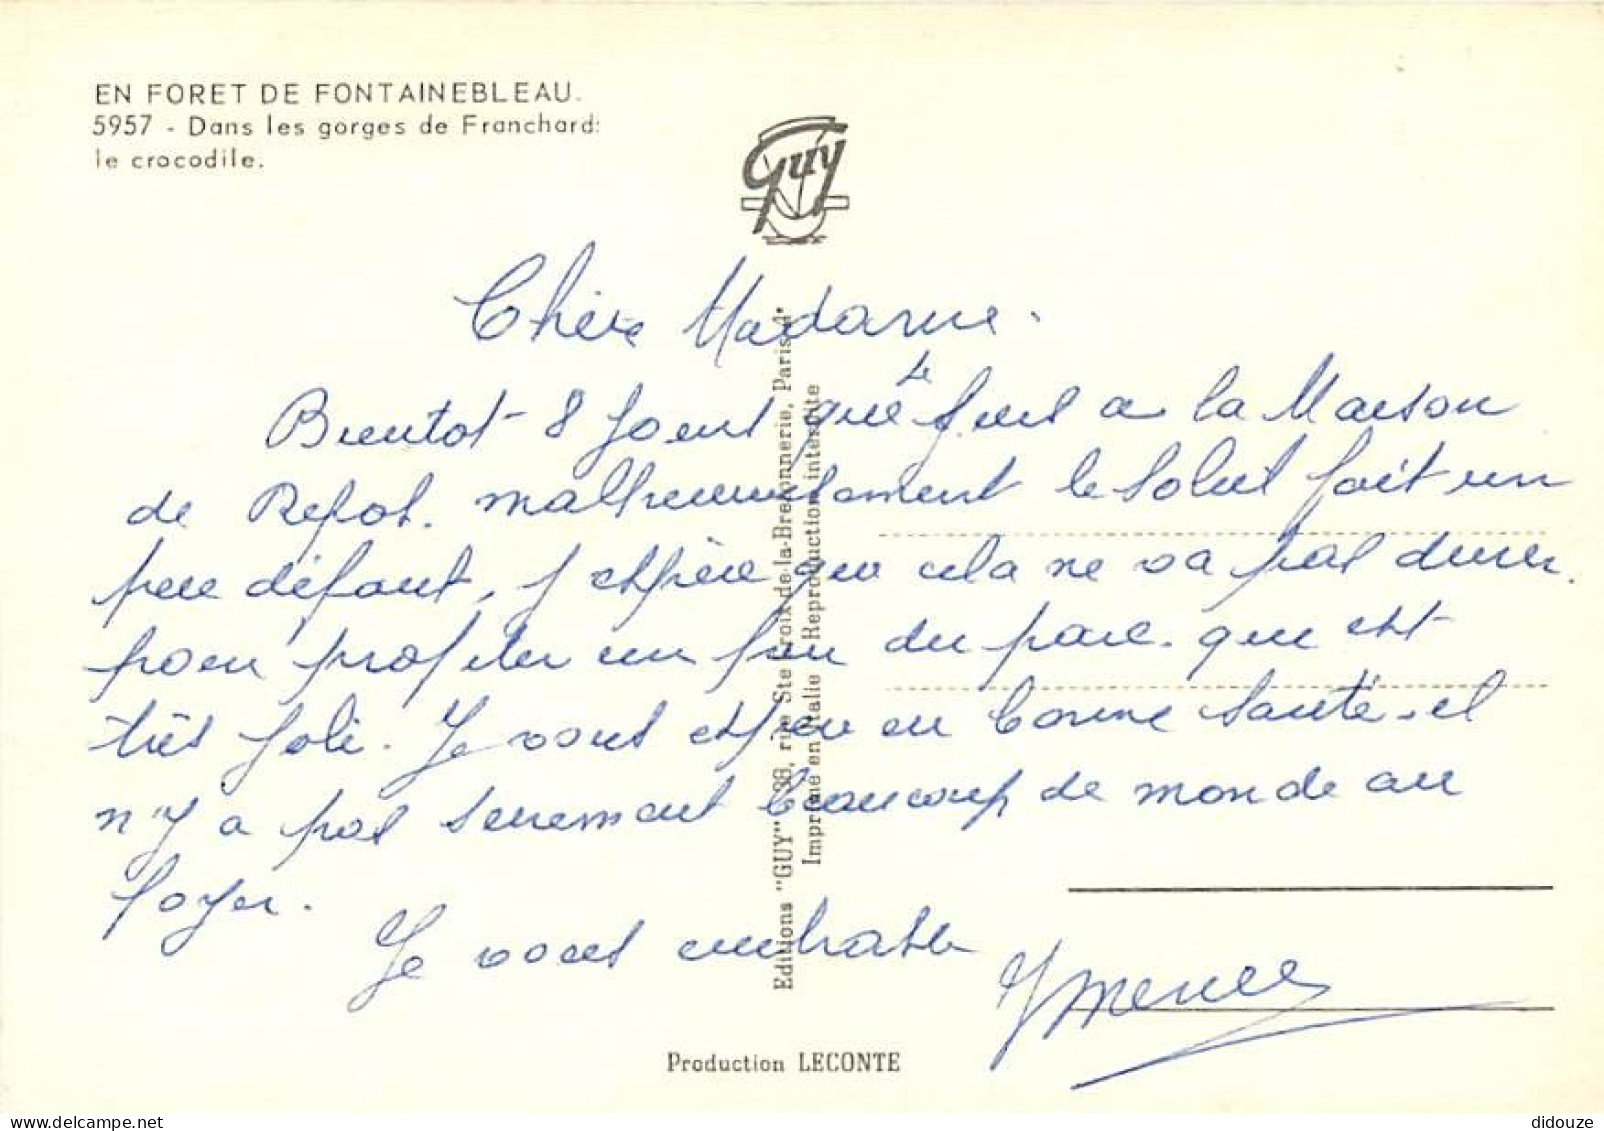 EN FORET DE FONTAINEBLEAU.
5957 - Dans les gorges de Franchard:
le crocodile.
Guy
Chère Madame.
Bientot 8 Jours que Je suis a la Maison
de Repos. malheureusement le soleil fait un
peu défaut, j espère que cela ne va pas durer.
pour profiter un peu du parc. qui est
très joli. Je vous espère en bonne santé. il
n'y a pas surement beaucoup de monde au
foyer.
Je vous embrasse
Editions "GUY" 38, rue Ste Croix-de-la-Bretonnerie, Paris-4e
Imprimé en Italie Reproduction interdite
Production LECONTE
delcampe.net
didouze